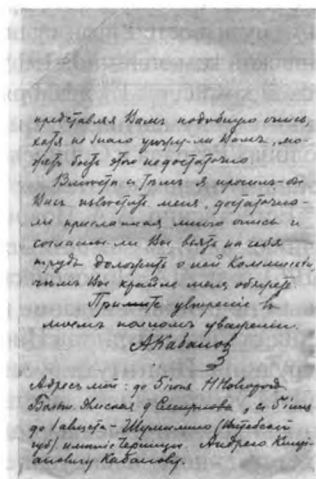 представляя Вамъ подобную опись,
хотя не знаю угожу-ли Вамъ, мо-
жетъ быть этого недостаточно.
Вмѣстѣ съ тѣмъ я просилъ-бы
Васъ извѣстить меня, достаточно-
ли присланная мною опись и
согласны ли Вы взять на себя
трудъ доложить о ней Коммиссіи,
чѣмъ Вы крайне меня обяжете.
Примите увѣреніе въ
моемъ полномъ уваженіи.
АКабановъ
Адресъ мой: до 5 іюня ННовгородъ
д Смирнова, съ 5 іюня
до 1 августа - (Витебской
губ). имѣніе Андрею
Кабанову.